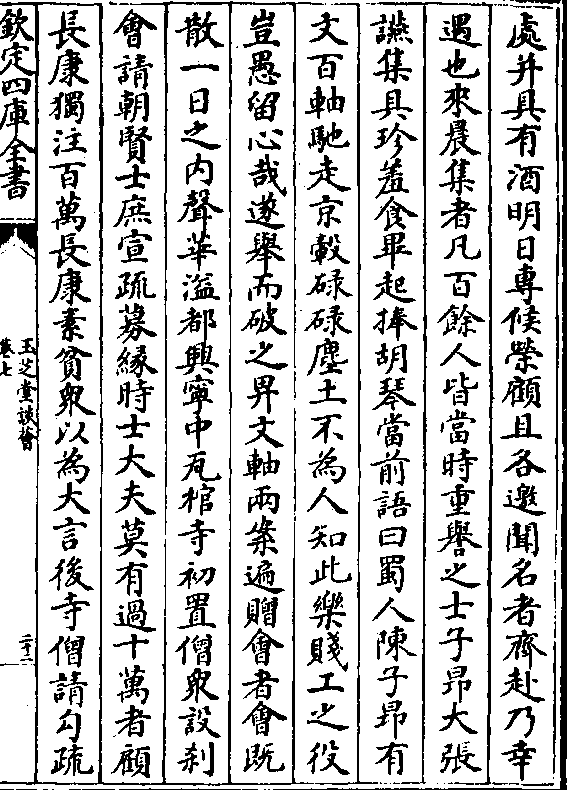 處并具有酒明日專候榮顧且各邀聞名者齊赴乃幸
遇也來晨集者凡百餘人皆當時重譽之士子昂大張
讌集具珍羞食畢起捧胡琴當前語曰蜀人陳子昂有
文百軸馳走京轂碌碌塵土不為人知此樂賤工之役
豈愚留心哉遂舉而破之舁文軸兩案遍贈會者會既
散一日之内聲華溢都興寧中瓦棺寺初置僧眾設刹
會請朝賢士庶宣疏募緣時士大夫莫有過十萬者顧
長康獨注百萬長康素貧眾以為大言後寺僧請勾疏
欽定四庫全書
玉芝堂談薈
卷七
二十二